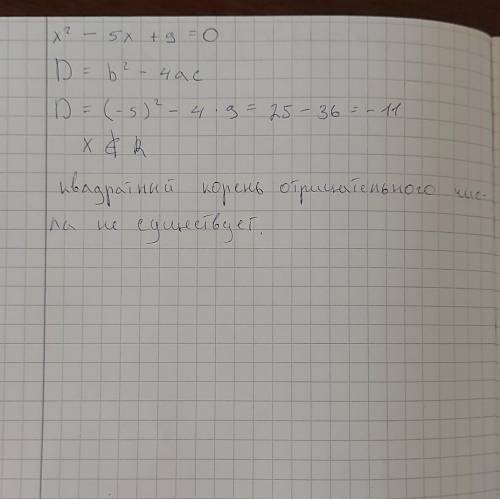 x² - 5x + 9 = 0
D = b² - 4ac
D = (-5)² - 4 · 9 = 25 - 36 = -11
x ∉ R
квадратный корень отрицательного чис-
ла не существует.